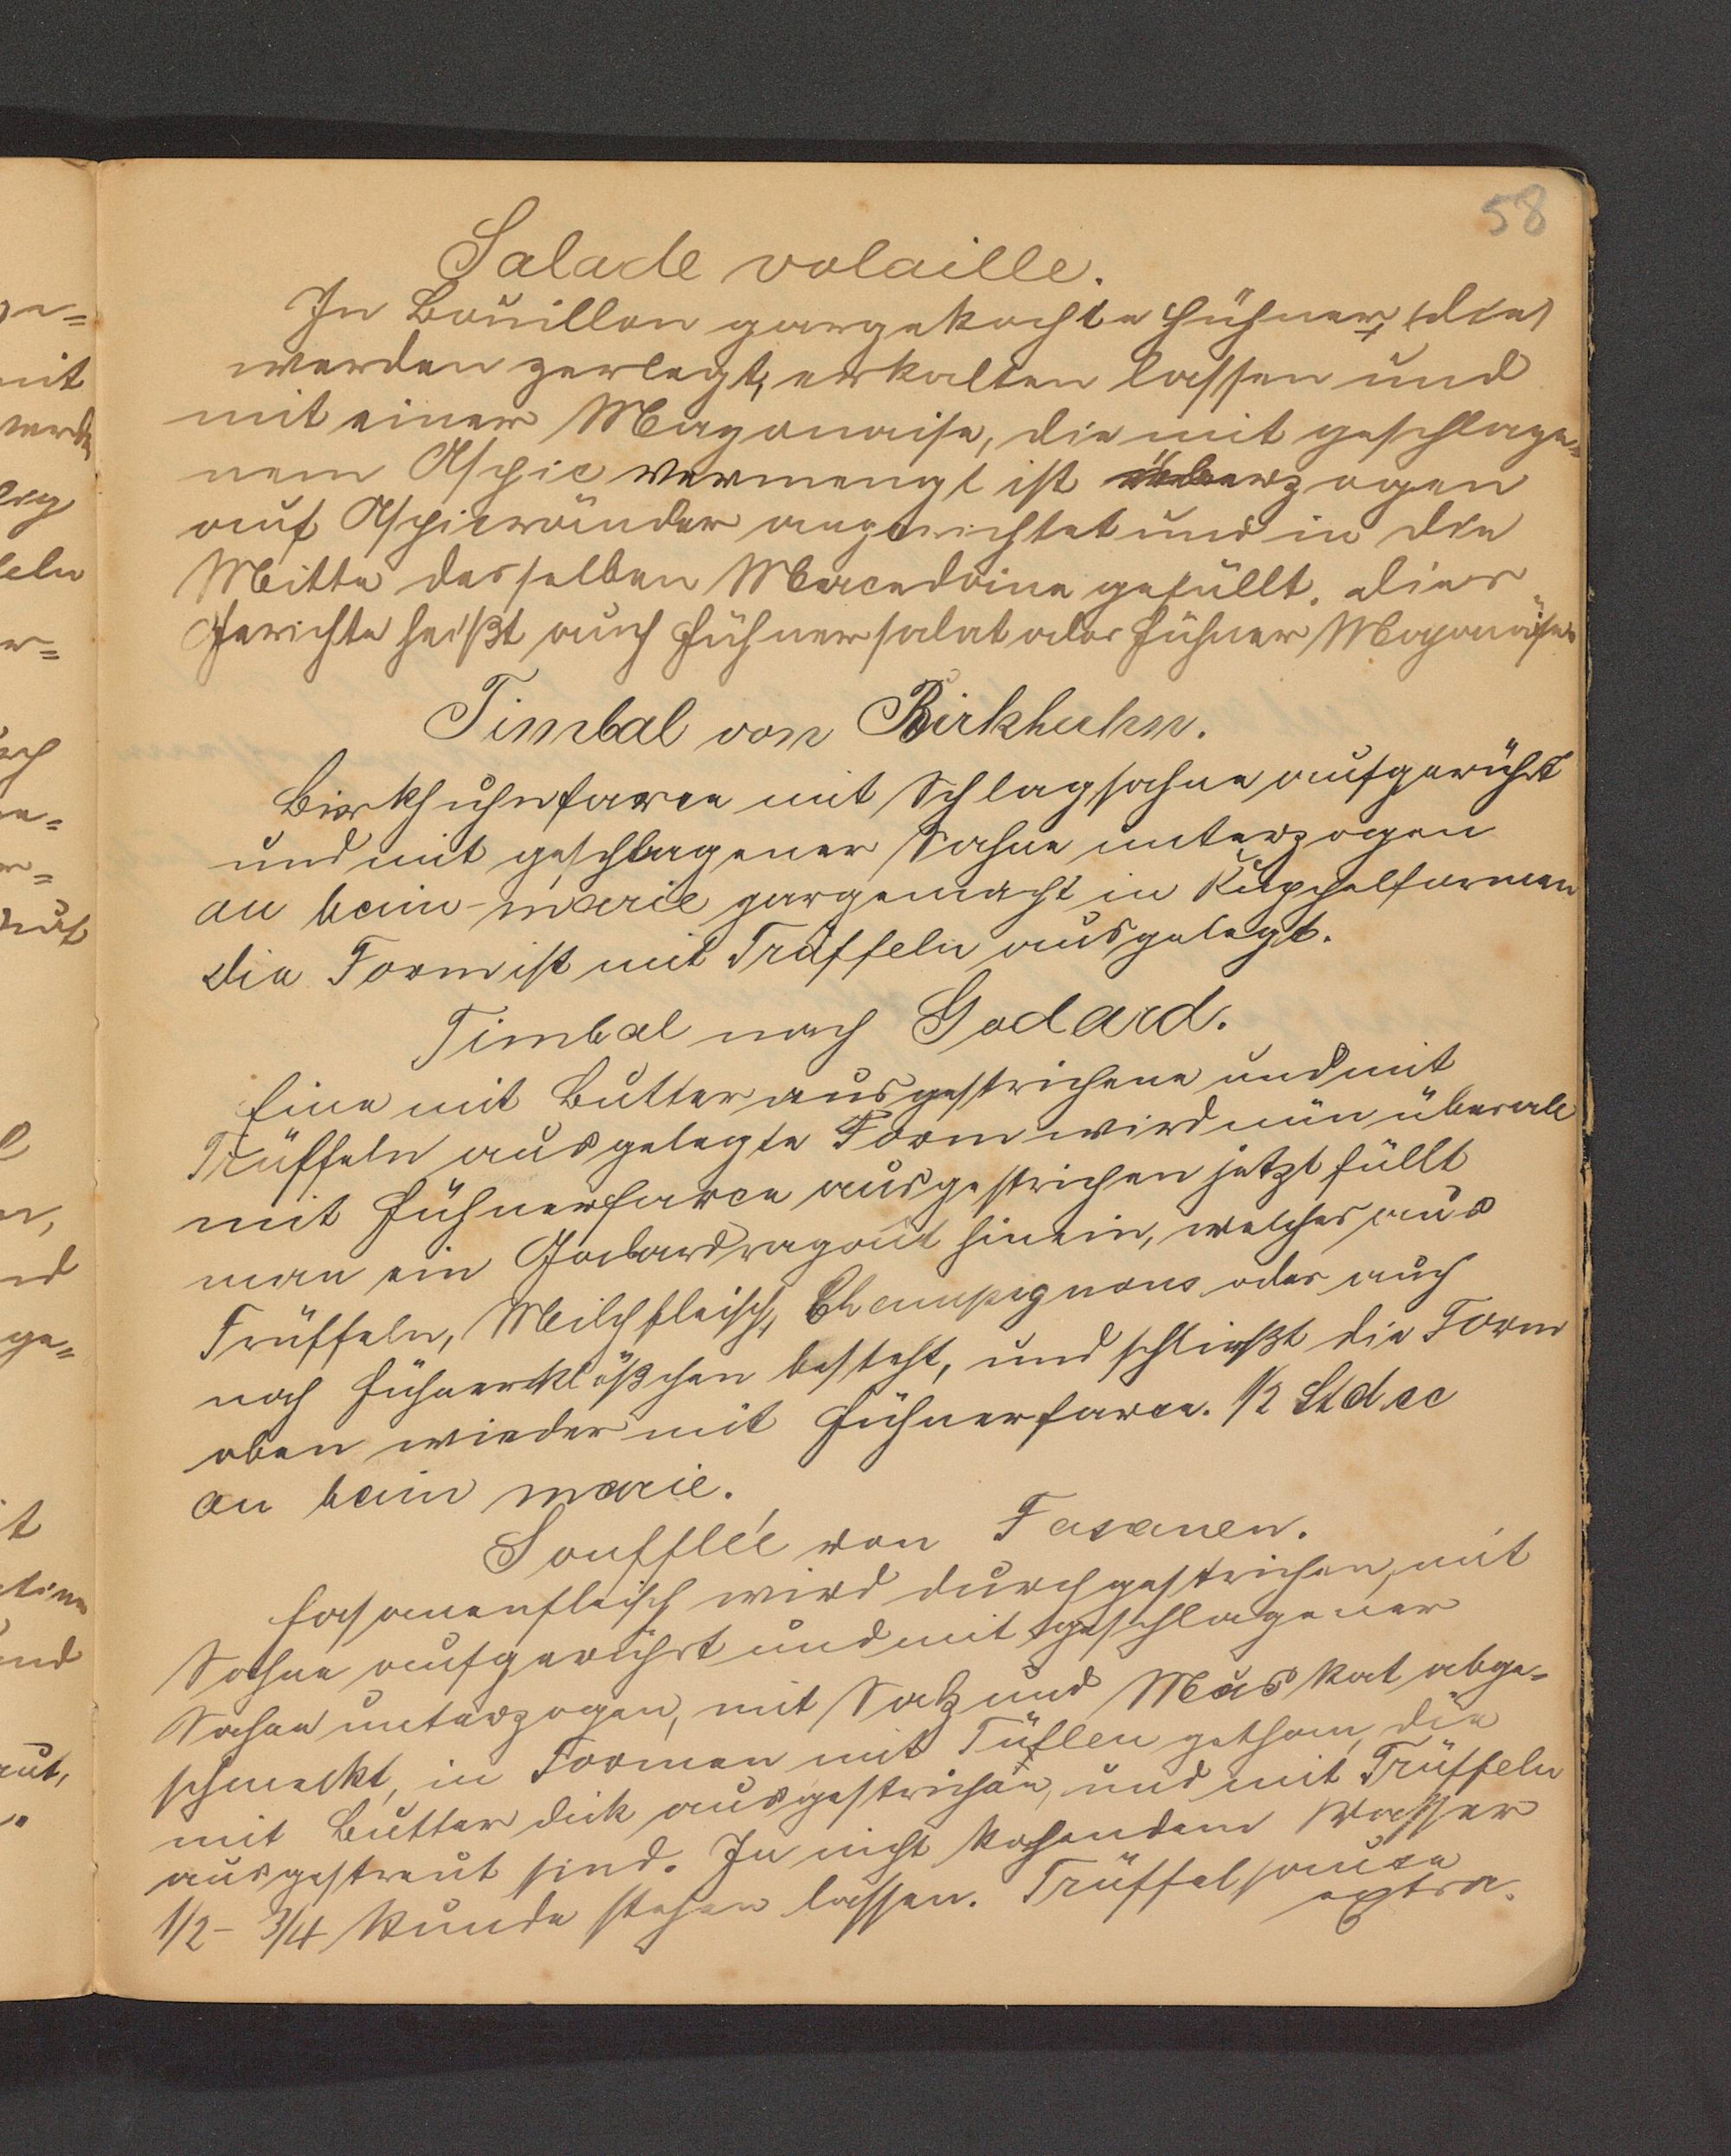 58
Salade volaille.
In Bouillon gargekochte Hühner, (die)
werden zerlegt, erkalten lassen und
mit einer Mayonaise, die mit geschlage=
nem Aspic vermengt ist überzogen
auf Aspicränder angerichtet und in die
Mitte desselben Macedoine gefüllt. Dies
Gerichte heißt auch Hühnersalat oder Hühner Mayonäse.
Timbal von Birkhuhn.
Birkhuhnfarce mit Schlagsahne aufgerührt
und mit geschlagener Sahne unterzogen
au bain-marie gargemacht in Kuppelformen
die Form ist mit Trüffeln ausgelegt.
Timbal nach Godard.
Eine mit Butter ausgestrichene und mit
Trüffeln ausgelegte Form wird nun überall
mit Hühnerfarce ausgestrichen jetzt füllt
man ein Godardragout hinein, welches aus
Trüffeln, Milchfleisch, Champignons oder auch
noch Hühnerklößchen besteht, und schließt die Form
oben wieder mit Hühnerfarce. 1/2 Std
au bain marie.
Soufflée von Fasanen.
Fasanenfleisch wird durchgestrichen, mit
Sahne aufgerührt und mit geschlagener
Sahne unterzogen, mit Salz und Muskat abge=
schmeckt, in Formen mit gethan, die
mit Butter dick ausgestrichen, und mit Trüffeln
ausgestreut sind. In nicht kochendem Wasser
1/2 - 3/4 Stunde stehen lassen. Trüffelsauce
extra.